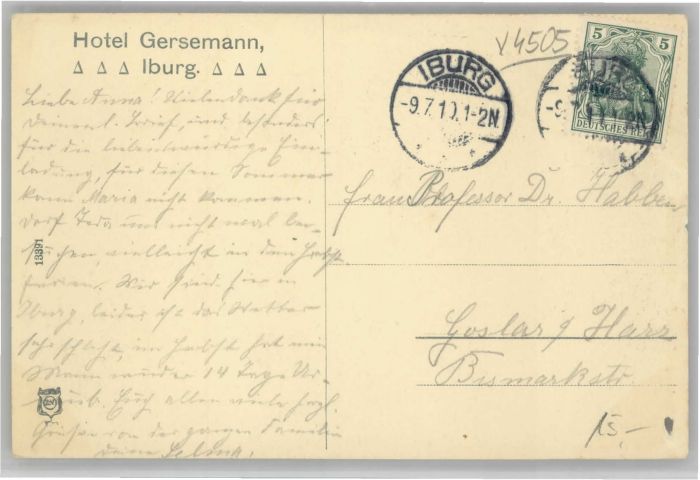 Hotel Gersemann,
△ △ △ Iburg. △ △ △
Liebe Anna! Vielen Dank für
Deinen l. Brief, und besonders
für die liebenswürdige Ein-
ladung, für diesen Sommer
kann Maria nicht kommen.
Darf Teda uns nicht mal be-
suchen, vielleicht in den Herbst
ferien. Wir sind hier in
Iburg, leider ist das Wetter
sehr schlecht, im Herbst hat mein
Mann wieder 14 Tage Ur-
laub. Euch allen viele herzl.
Grüsse von der ganzen Familie
Deine Selma.
13391
V 4505
IBURG
-9.7.10.1-2N.
IBURG
5 5
DEUTSCHES REICH
Frau Professor Dr. Habben
Goslar a/ Harz
Bismarkstr.
15,-